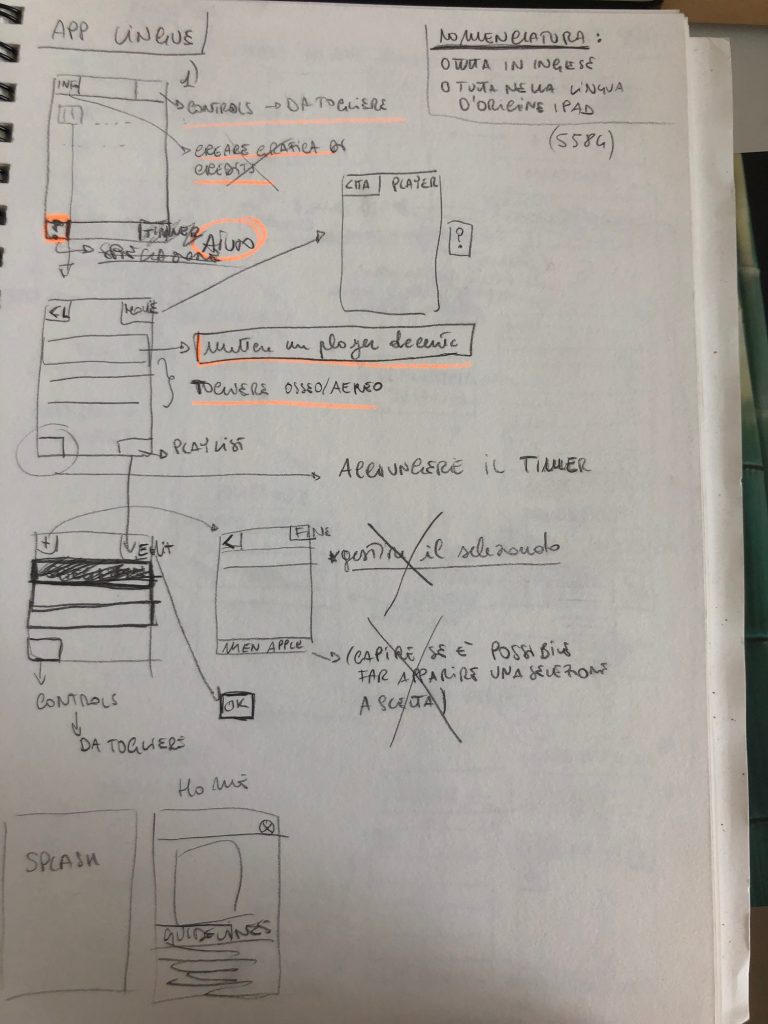 APP LINGUE
NOMENCLATURA:
O TUTTA IN INGLESE
O TUTTA NELLA LINGUA
D'ORIGINE IPAD
1)
CONTROLS → DA TOGLIERE
CREARE GRAFICA DI
CREDITS
?
TIMER
AIUTO
PLAYER
?
HOME
Mettere un player decente
TOGLIERE OSSEO/AEREO
PLAYLIST
AGGIUNGERE IL TIMER
+
Edit
<
FINE
*gestire il selezionato
MEN APPLE
(CAPIRE SE È POSSIBILE
FAR APPARIRE UNA SELEZIONE
A SCELTA)
OK
CONTROLS
DA TOGLIERE
HOME
SPLASH
GUIDELINES